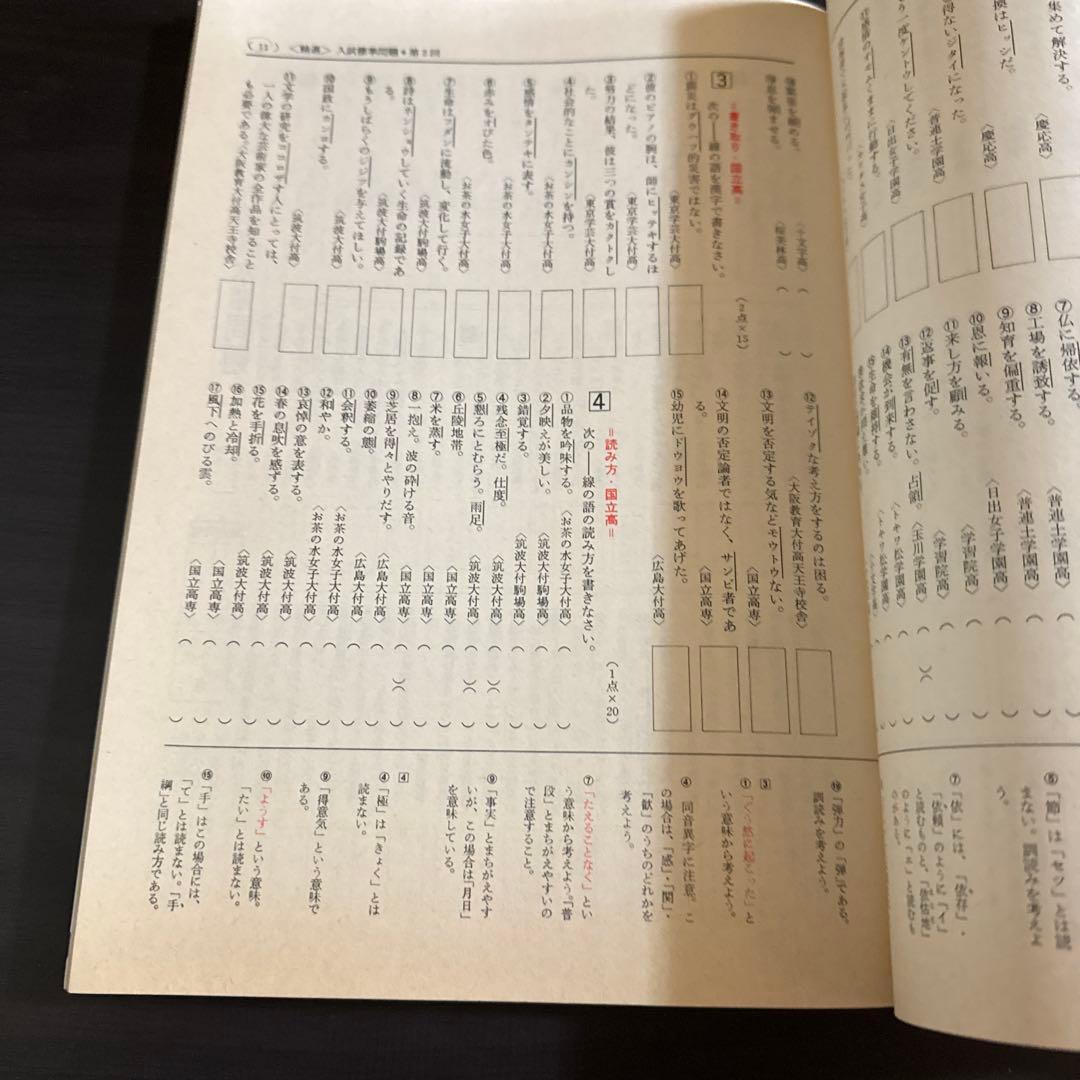 (11) <精選> 入試標準問題●第2回
〈十文字高〉
〈桜美林高〉
3 =書き取り・国立高=
次の――線の語を漢字で書きなさい。
(2点×15)
①震災はグウハツ的災害ではない。
〈東京学芸大付高〉
②彼のピアノの腕は、師にヒッテキするほ
どになった。
〈東京学芸大付高〉
③努力の結果、彼は三つの賞をカクトクし
た。
〈東京学芸大付高〉
④社会的なことにカンシンを持つ。
〈お茶の水女子大付高〉
⑤感情をタンテキに表す。
〈お茶の水女子大付高〉
⑥赤みをオびた色。
〈お茶の水女子大付高〉
⑦生命はフダンに流動し、変化して行く。
〈筑波大付駒場高〉
⑧詩はネンショウしていく生命の記録であ
る。
〈筑波大付駒場高〉
⑨もうしばらくのジジツを与えてほしい。
〈筑波大付高〉
⑩国政にカンヨする。
〈筑波大付高〉
⑪文学の研究をココロザす人にとっては、
一人の偉大な芸術家の全作品を知ること
も必要である。〈大阪教育大付高天王寺校舎〉
⑫テイゾクな考え方をするのは困る。
〈大阪教育大付高天王寺校舎〉
⑬文明を否定する気などモウトウない。
〈国立高専〉
⑭文明の否定論者ではなく、サンビ者であ
る。
〈国立高専〉
⑮幼児にドウヨウを歌ってあげた。
〈広島大付高〉
4 =読み方・国立高=
次の――線の語の読み方を書きなさい。
(1点×20)
①品物を吟味する。〈お茶の水女子大付高〉
②夕映えが美しい。〈筑波大付駒場高〉
③錯覚する。〈筑波大付駒場高〉
④残念至極だ。仕度。〈筑波大付高〉
⑤懇ろにとむらう。雨足。〈筑波大付高〉
⑥丘陵地帯。〈国立高専〉
⑦米を蒸す。〈国立高専〉
⑧一抱え。波の砕ける音。〈国立高専〉
⑨芝居を得々とやりだす。〈広島大付高〉
⑩萎縮の態。〈広島大付高〉
⑪会釈する。〈お茶の水女子大付高〉
⑫和やか。〈お茶の水女子大付高〉
⑬哀悼の意を表する。〈筑波大付高〉
⑭春の息吹を感ずる。〈筑波大付高〉
⑮花を手折る。〈筑波大付高〉
⑯加熱と冷却。〈国立高専〉
⑰風下へのびる雲。〈国立高専〉
⑲「弾力」の「弾」である。
訓読みを考えよう。
3
①「ぐう然に起こった」と
いう意味から考えよう。
④ 同音異字に注意。こ
の場合は、「感」・「関」・
「歓」のうちのどれかを
考えよう。
⑦「たえることなく」とい
う意味から考えよう。「普
段」とまちがえやすいの
で注意すること。
⑨「事実」とまちがえやす
いが、この場合は「月日」
を意味している。
4
④「極」は「きょく」とは
読まない。
⑨「得意気」という意味で
ある。
⑩「ようす」という意味。
「たい」とは読まない。
⑮「手」はこの場合には、
「て」とは読まない。「手
綱」と同じ読み方である。
集めて解決する。
換はヒッシだ。
〈慶応高〉
〈慶応高〉
得ないジタイになった。
〈普連土学園高〉
う一度ケントウしてください。
〈日出女子学園高〉
⑦仏に帰依する。〈普連土学園高〉
⑧工場を誘致する。〈普連土学園高〉
⑨知育を偏重する。〈日出女子学園高〉
⑩恩に報いる。〈学習院高〉
⑪来し方を顧みる。〈学習院高〉
⑫返事を促す。〈玉川学園高〉
⑬有無を言わさない。占領。
⑭機会が到来する。
〈トキワ松学園高〉
⑤「節」は「セツ」とは読
まない。訓読みを考えよ
う。
⑦「依」には、「依存」・
「依頼」のように「イ」
と読むものと、「依怙地」
のように、「エ」と読むも